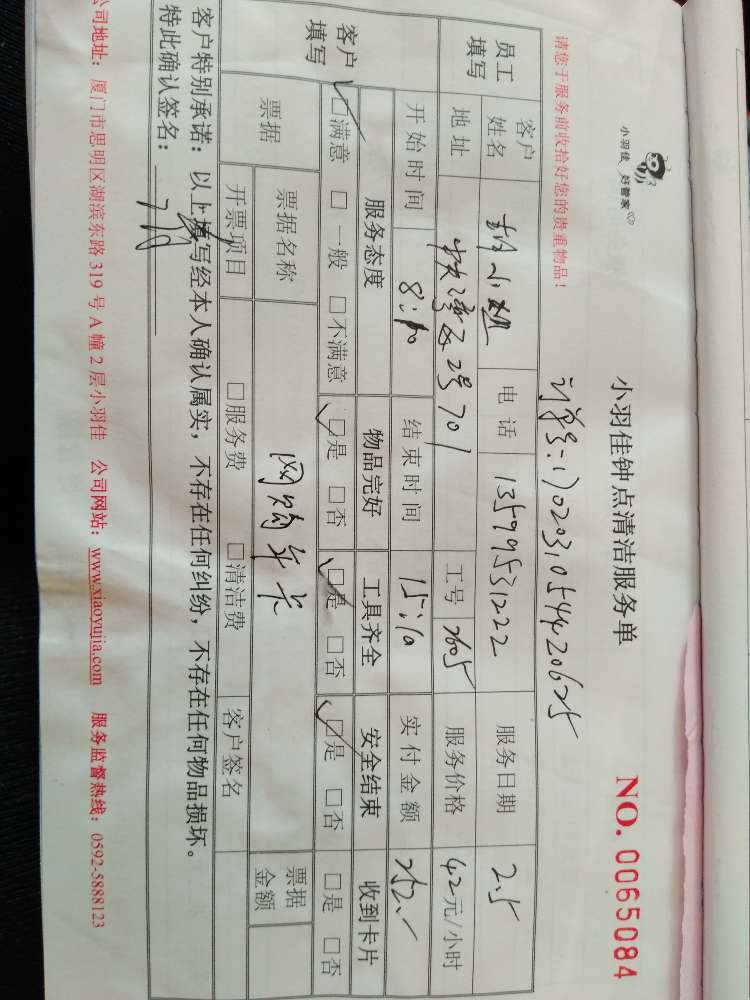 小羽佳 好管家
小羽佳钟点清洁服务单
NO. 0065084
请您于服务前收拾好您的贵重物品！
订单号：1702031054420625
员工填写
客户姓名 胡小姐 电话 13599531222 服务日期 2.5
地址 2号701 工号 2605 服务价格 42元/小时
开始时间 8:10 结束时间 15:10 实付金额 252.-
客户填写
服务态度 物品完好 工具齐全 安全结束 收到卡片
☑满意 □一般 □不满意 ☑是 □否 ☑是 □否 ☑是 □否 □是 □否
票据 票据名称 网购年卡 票据金额
开票项目 □服务费 □清洁费 客户签名
客户特别承诺：以上填写经本人确认属实，不存在任何纠纷，不存在任何物品损坏。
特此确认签名：
公司地址：厦门市思明区湖滨东路319号A幢2层小羽佳 公司网站：www.xiaoyujia.com 服务监督热线：0592-5888123